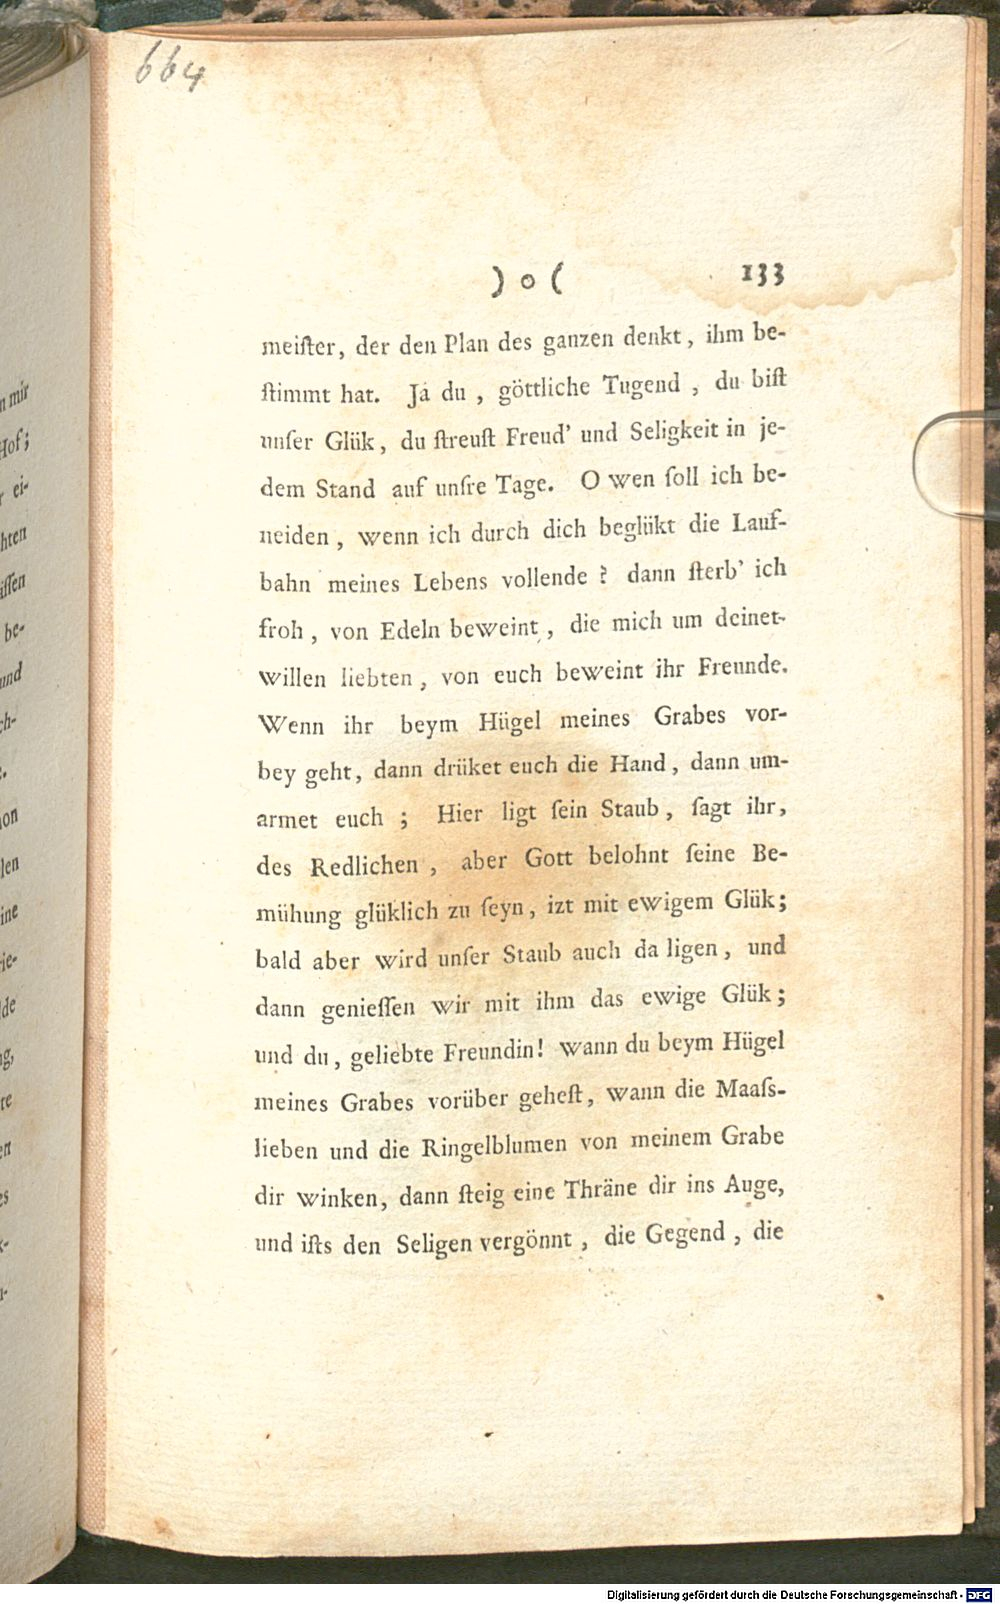 664
) o ( 133
meiſter, der den Plan des ganzen denkt, ihm be-
ſtimmt hat. Ja du, göttliche Tugend, du biſt
unſer Glük, du ſtreuſt Freud' und Seligkeit in je-
dem Stand auf unſre Tage. O wen ſoll ich be-
neiden, wenn ich durch dich beglükt die Lauf-
bahn meines Lebens vollende? dann ſterb' ich
froh, von Edeln beweint, die mich um deinet-
willen liebten, von euch beweint ihr Freunde.
Wenn ihr beym Hügel meines Grabes vor-
bey geht, dann drüket euch die Hand, dann um-
armet euch; Hier ligt ſein Staub, ſagt ihr,
des Redlichen, aber Gott belohnt ſeine Be-
mühung glüklich zu ſeyn, izt mit ewigem Glük;
bald aber wird unſer Staub auch da ligen, und
dann genieſſen wir mit ihm das ewige Glük;
und du, geliebte Freundin! wann du beym Hügel
meines Grabes vorüber geheſt, wann die Maaſs-
lieben und die Ringelblumen von meinem Grabe
dir winken, dann ſteig eine Thräne dir ins Auge,
und iſts den Seligen vergönnt, die Gegend, die
n mir
Hof;
r ei-
hten
iſſen
be-
und
ch-
on
len
ine
ie-
lde
ng,
re
en
es
Digitalisierung gefördert durch die Deutsche Forschungsgemeinschaft - DFG